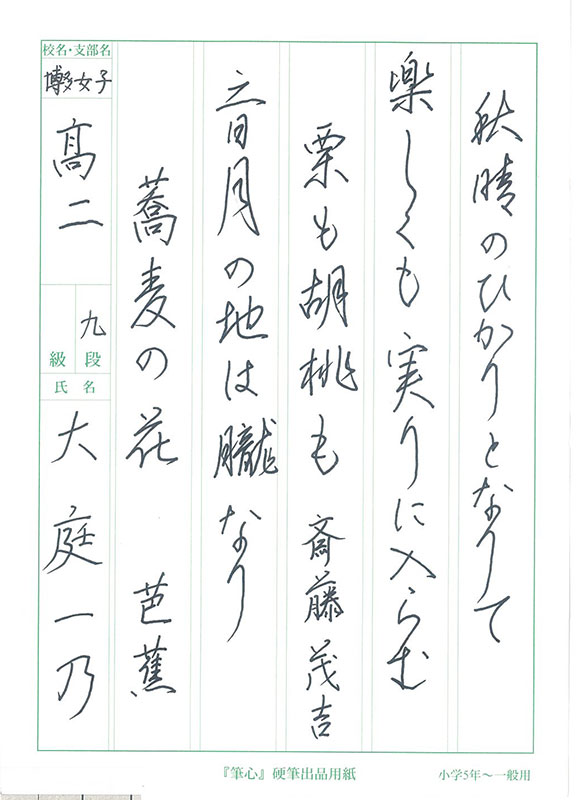 秋晴のひかりとなりて
楽しくも実りに入らむ
栗も胡桃も 斎藤茂吉
三日月の地は朧なり
蕎麦の花 芭蕉
校名・支部名
博多女子
高二
九段
級
氏名
大庭一乃
『筆心』硬筆出品用紙
小学5年〜一般用